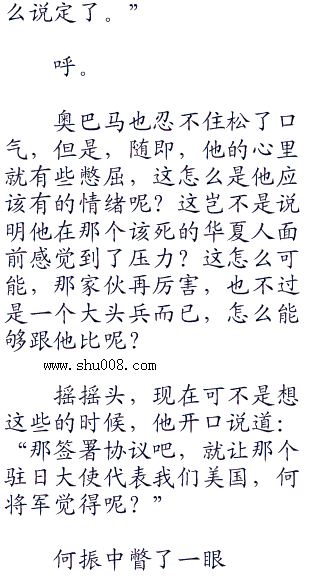 么说定了。”
呼。
奥巴马也忍不住松了口
气，但是，随即，他的心里
就有些憋屈，这怎么是他应
该有的情绪呢？这岂不是说
明他在那个该死的华夏人面
前感觉到了压力？这怎么可
能，那家伙再厉害，也不过
是一个大头兵而已，怎么能
够跟他比呢？
www.shu008.com
摇摇头，现在可不是想
这些的时候，他开口说道：
“那签署协议吧，就让那个
驻日大使代表我们美国，何
将军觉得呢？”
何振中瞥了一眼